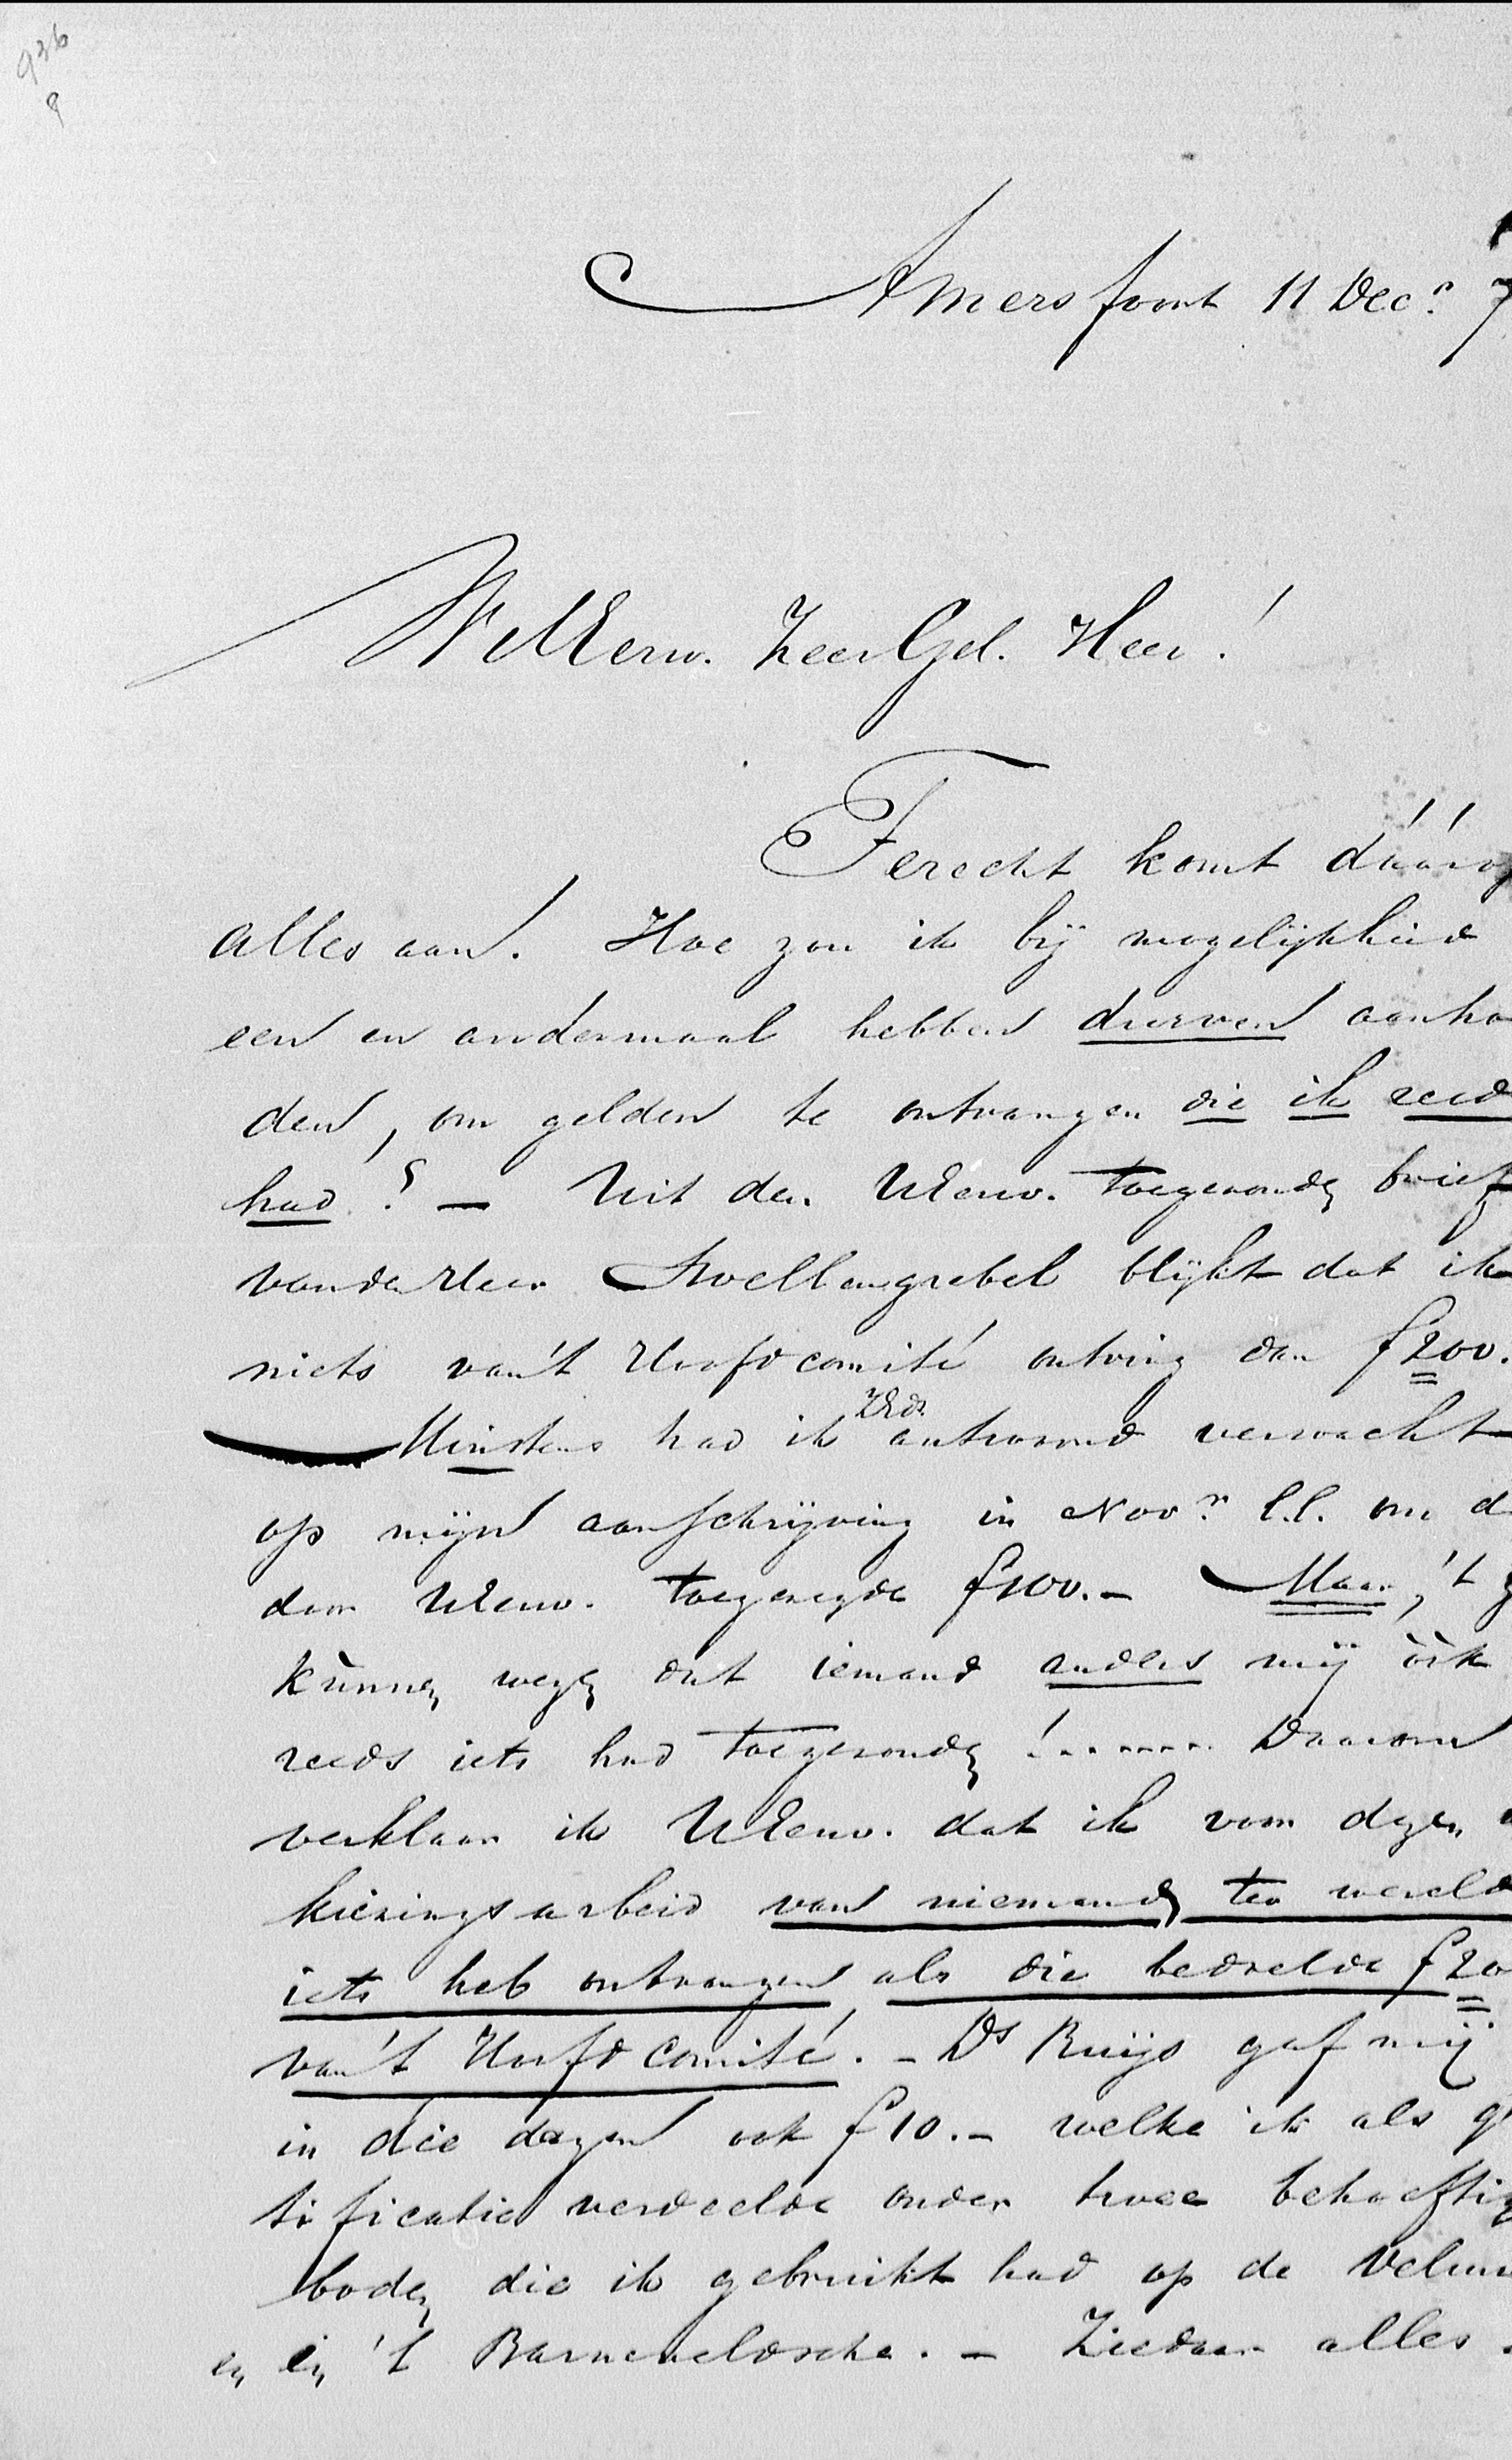 936
8
Amersfoort 11 Decr. 7
WelEerw. ZeerGel. Heer!
Terecht komt dáárop
alles aan. Hoe zou ik bij mogelijkheid
een en andermaal hebben durven aanho
den, om gelden te ontvangen die ik reed
had? — Uit den UEerw. toegezonden brief
van den Heer Swellengrebel blijkt dat ik
niets van 't Hoofdcomité ontving dan f200.
Minstens had ik ZEds. antwoord verwacht
op mijn aanschrijving in Novr. l.l. om d
door UEerw. toegezegde f100.– Maar, 't
kùnnen wezen dat iemand anders mij òòk
reeds iets had toegezonden!....... Daarom
verklaar ik UEerw. dat ik voor dezen
kiezingsarbeid van niemand ter wereld
iets heb ontvangen als die bedoelde f20
van 't Hoofdcomité. – Ds Ruijs gaf mij
in die dagen ook f10.– welke ik als g
tificatie verdeelde onder twee behoeftig
boden die ik gebruikt had op de Veluw
en in 't Barneveldsche. – Ziedaar alles.